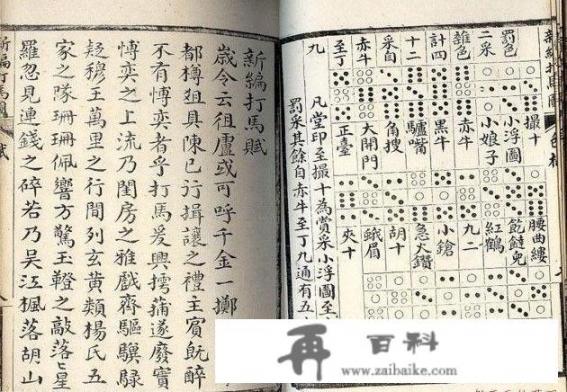 新編打馬圖
色樣
罰色
二采
雜色
計四
十二
采自
赤牛
至丁
九
撮十
小浮圖
小娘子
赤牛
黑牛
驢嘴
角搜
大開門
正臺
腰曲縷
紅鶴
九二
小鎗
急火鑽
胡十
蛾眉
夾十
凡堂印至撮十為賞采小浮圖至
罰采其餘自赤牛至丁九通有五
新編打馬賦
歲今云徂盧或可呼千金一擲
都樽俎具陳已行揖讓之禮主賓既醉
不有愽奕者乎打馬爰興摴蒱遂廢實
愽奕之上流乃閨房之雅戲齊驅驥騄
疑穆王萬里之行間列玄黃類楊氏五
家之隊珊珊佩響方驚玉鐙之敲落〻星
羅忽見連錢之碎若乃吳江楓落胡山
新編打馬圖
賦
再 百科
www.zaibaike.com